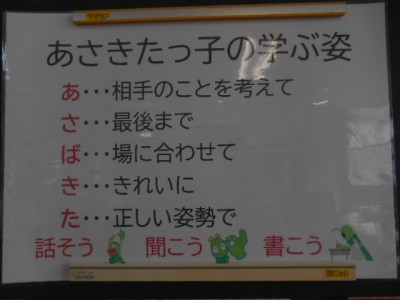 あさきたっ子の学ぶ姿
あ・・・相手のことを考えて
さ・・・最後まで
ば・・・場に合わせて
き・・・きれいに
た・・・正しい姿勢で
話そう 聞こう 書こう